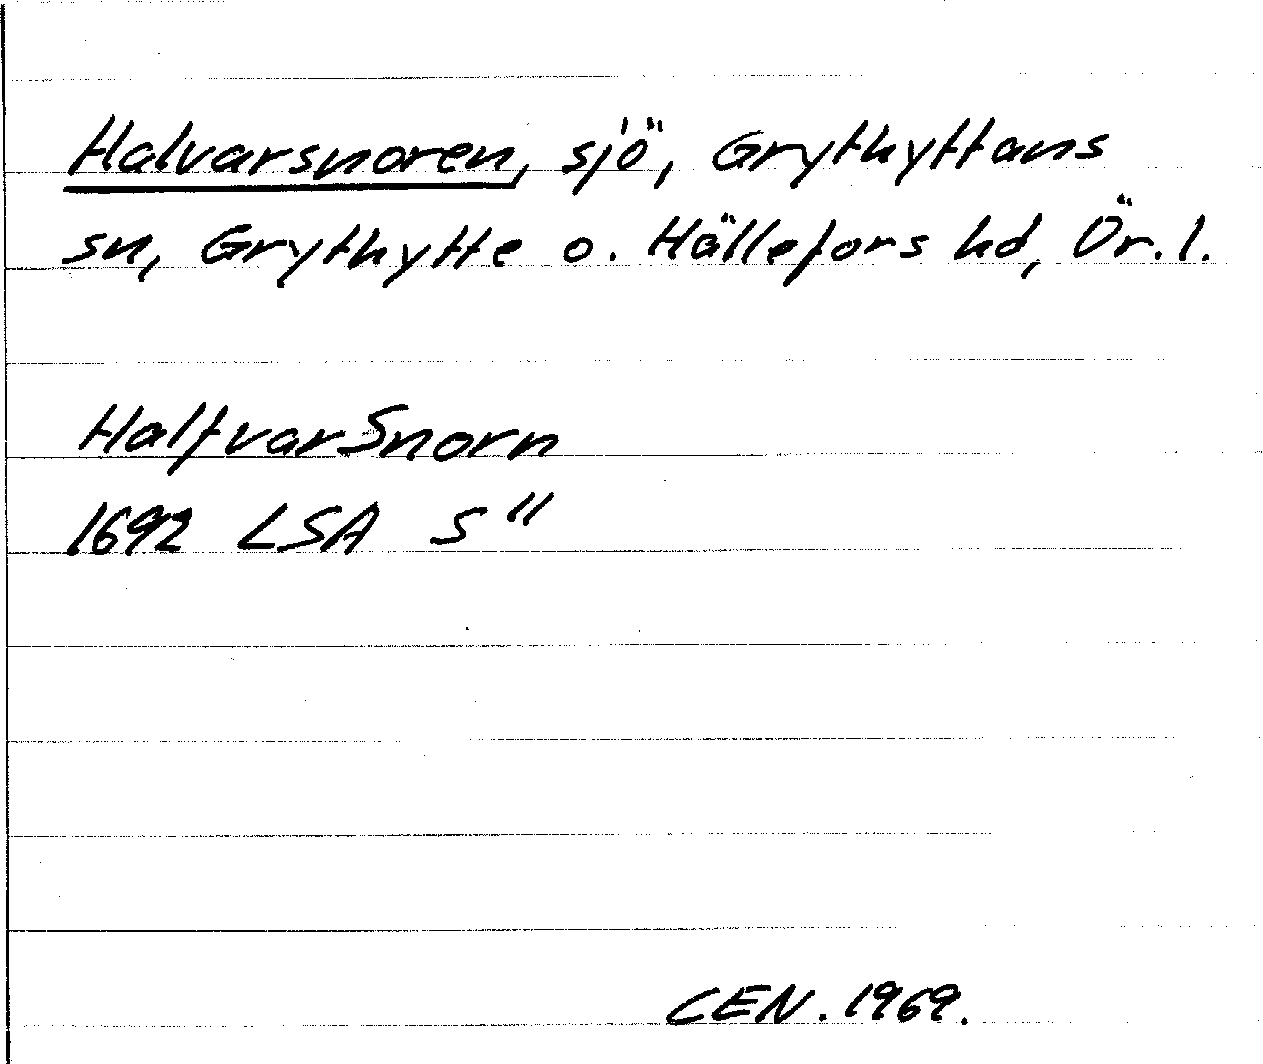 Halvarsnoren, sjö, Grythyttans
sn, Grythytte o. Hällefors hd, Ör. l.
HalfvarSnorn
1692 LSA S"
CEN. 1969.